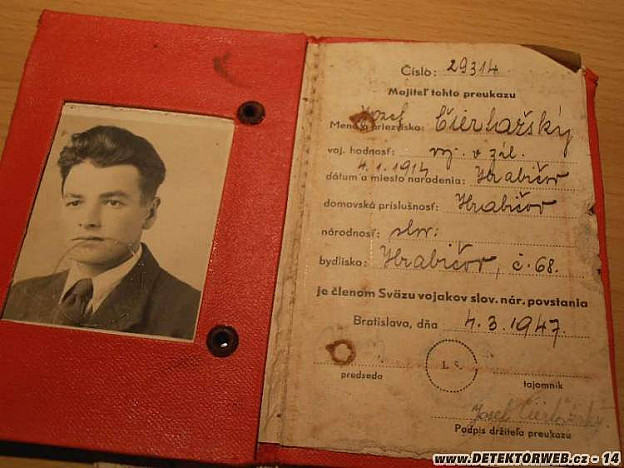 Číslo: 29314.
Majiteľ tohto preukazu
Meno a priezvisko: Jozef Čierťažský
voj. hodnosť: voj. v zál.
dátum a miesto narodenia: 4.1.1914 Hrabičov
domovská príslušnosť: Hrabičov
národnosť: slov.
bydlisko: Hrabičov, č. 68.
je členom Sväzu vojakov slov. nár. povstania
Bratislava, dňa 4.3.1947.
L. S.
predseda tajomník
Jozef Čierťažský
Podpis držiteľa preukazu
www.DETEKTORWEB.cz - 14